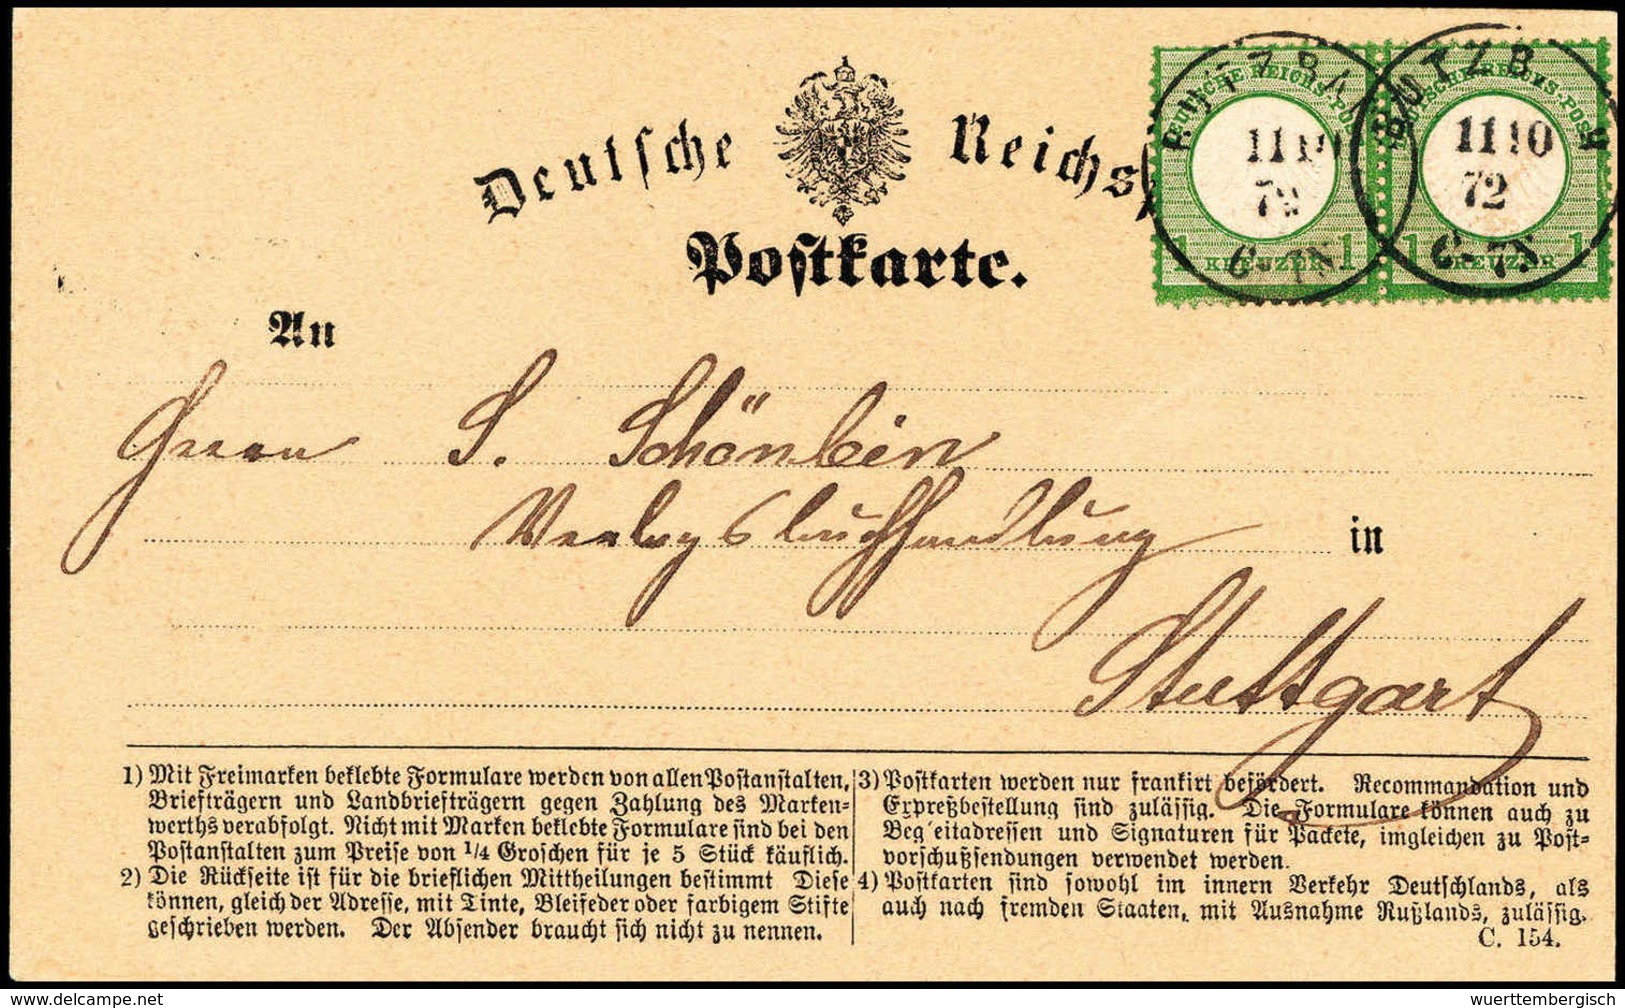 Deutsche Reichs
Postkarte.
DEUTSCHE REICHS-POST
1 KREUZER 1
BUTZBA
11 10
72
6-7N
BUTZB
11 10
72
6-7N
An
Herrn S. Schönlein
Verlagsbuchhandlung in
Stuttgart
1) Mit Freimarken beklebte Formulare werden von allen Postanstalten,
Briefträgern und Landbriefträgern gegen Zahlung des Marken-
werths verabfolgt. Nicht mit Marken beklebte Formulare sind bei den
Postanstalten zum Preise von 1/4 Groschen für je 5 Stück käuflich.
2) Die Rückseite ist für die brieflichen Mittheilungen bestimmt Diese
können, gleich der Adresse, mit Tinte, Bleifeder oder farbigem Stifte
geschrieben werden. Der Absender braucht sich nicht zu nennen.
3) Postkarten werden nur frankirt befördert. Recommandation und
Expreßbestellung sind zulässig. Die Formulare können auch zu
Beg'eitadressen und Signaturen für Packete, imgleichen zu Post-
vorschußsendungen verwendet werden.
4) Postkarten sind sowohl im innern Verkehr Deutschlands, als
auch nach fremden Staaten, mit Ausnahme Rußlands, zulässig.
C. 154.
delcampe.net
wuerttembergisch